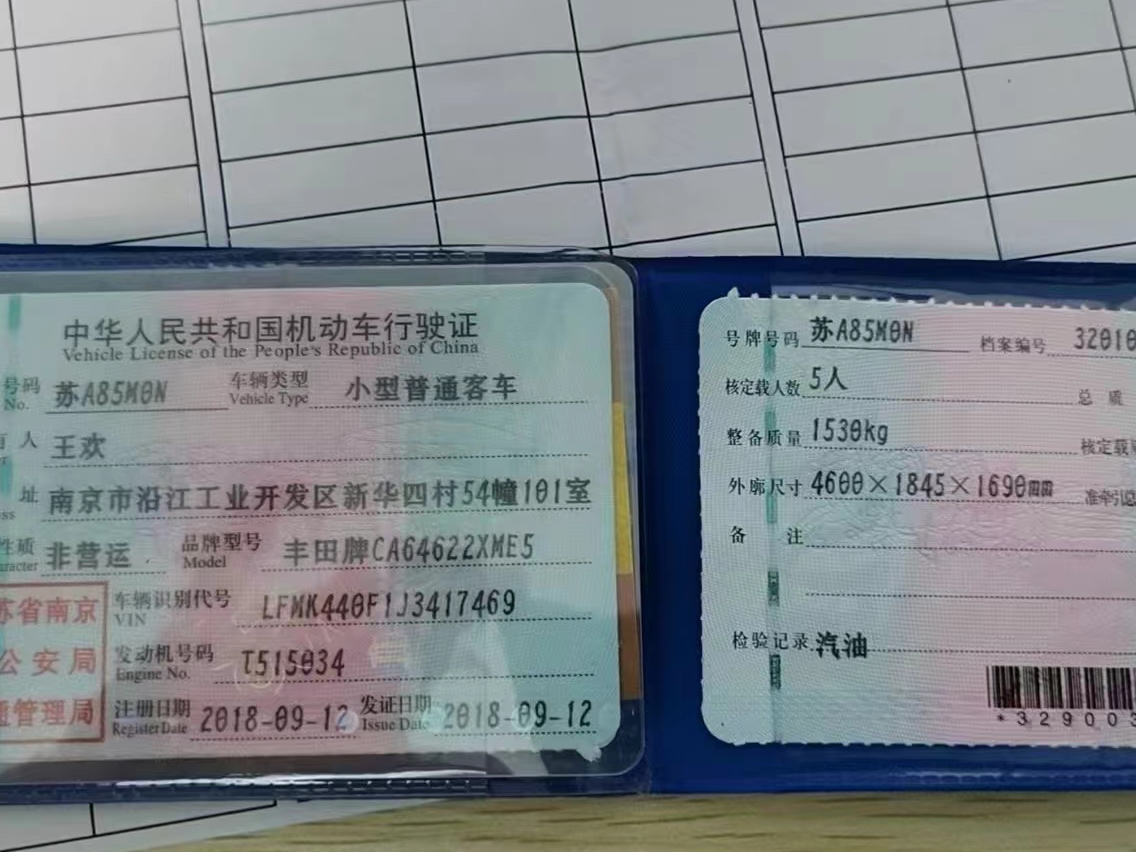 中华人民共和国机动车行驶证
Vehicle License of the People's Republic of China
号码 苏A85M0N 车辆类型 小型普通客车
No. Vehicle Type
人 王欢
址 南京市沿江工业开发区新华四村54幢101室
性质 非营运 品牌型号 丰田牌CA64622XME5
Model
苏省南京
公安局
管理局
车辆识别代号 LFMK440F1J3417469
VIN
发动机号码 T515034
Engine No.
注册日期 2018-09-12 发证日期 2018-09-12
Register Date Issue Date
号牌号码 苏A85M0N 档案编号 32010
核定载人数 5人 总 质
整备质量 1530kg 核定载
外廓尺寸 4600×1845×1690mm 准牵引总
备 注
检验记录 汽油
*329003